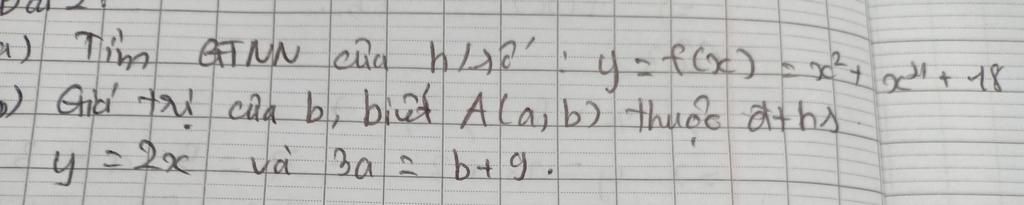 a) Tìm GTNN của h/số : y = f(x) = x² + x⁴ + 18
b) Giá trị của b, biết A(a, b) thuộc đths
y = 2x và 3a = b + 9.